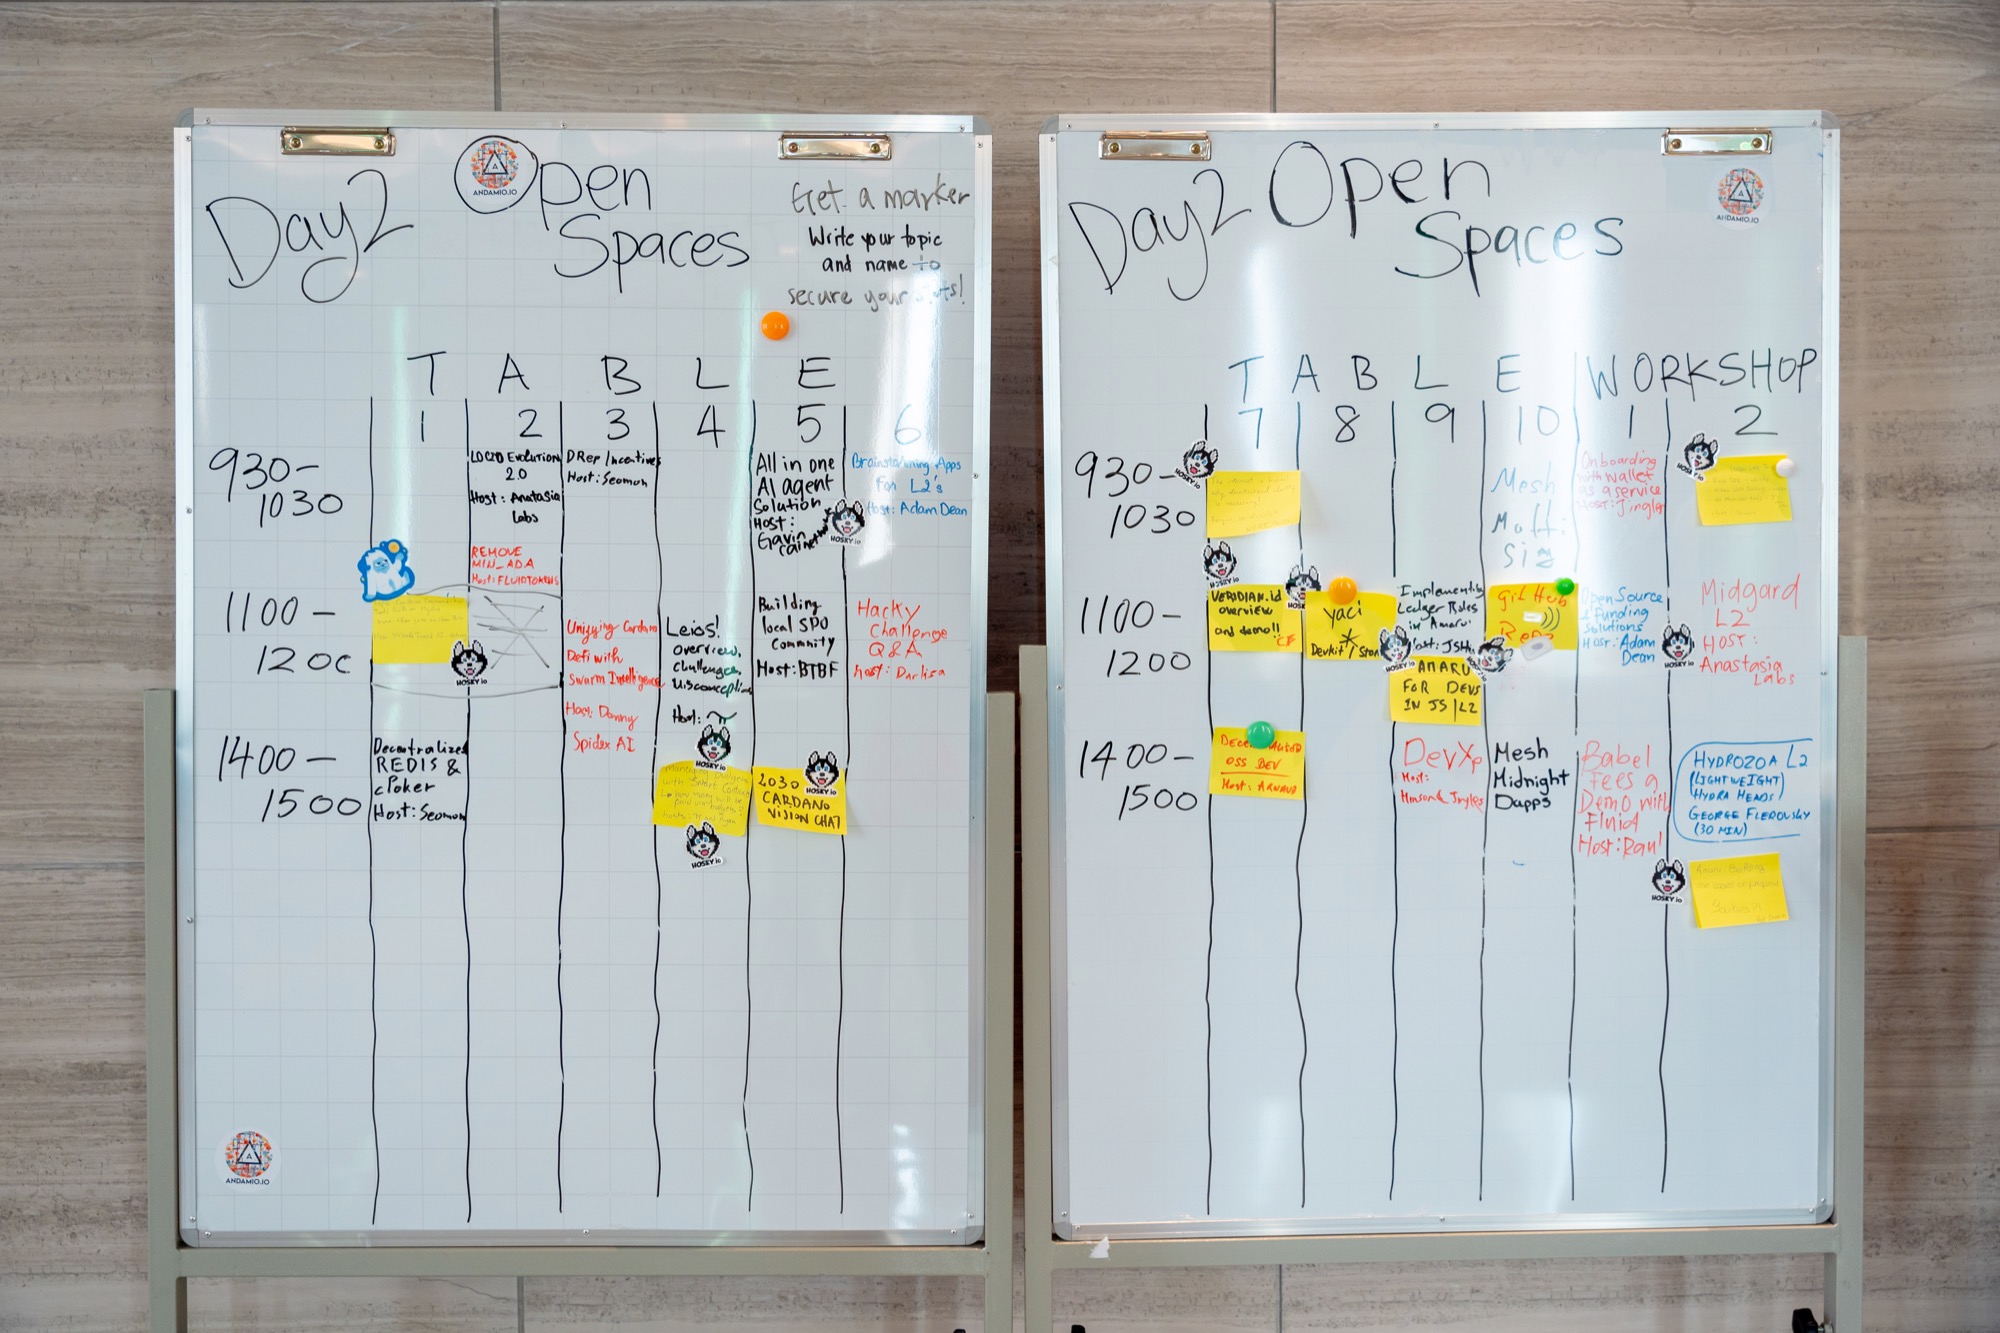 Day 2
Open
Spaces
ANDAMIO.IO
Get a marker
Write your topic
and name to
secure your
T A B L E
1 2 3 4 5 6
930-
1030
LOCZD EVOLUTION
2.0
Host: Anatasia
Labs
REMOVE
MIN_ADA
Host: FLUIDTOKENS
DRep Incentives
Host: Seomon
All in one
AI agent
Solution
Host:
Gavin
HOSKY.io
Brainstorming Apps
For L2's
Host: Adam Dean
1100-
120c
HOSKY.io
Unifying Cardano
Defi with
Swarm Intelligence
Host: Danny
Spidex AI
Leios!
overview,
challenges,
Host:
HOSKY.io
Building
local SPO
Community
Host: BTBF
Hacky
Challenge
Q&A
host: Darlisa
1400-
1500
Decentralized
REDIS &
cPoker
Host: Seomon
HOSKY.io
2030
CARDANO
VISION CHAT
HOSKY.io
ANDAMIO.IO
Day 2
Open
Spaces
ANDAMIO.IO
T A B L E WORKSHOP
7 8 9 10 1 2
930-
1030
HOSKY.io
Mesh
Onboarding
with wallet
as a service
HOST: Jingles
1100-
1200
HOSKY.io
VERIDIAN.id
overview
and demo!!
CF
yaci
Devkit /
Implementing
Ledger Rules
in Amaru
HOSKY.io
AMARU
FOR DEVS
IN JS/L2
git Hub
Open Source
& funding
Solutions
Host: Adam
Dean
HOSKY.io
Midgard
L2
HOST:
Anastasia
Labs
1400-
1500
OSS DEV
Host: ARNAUD
DevXp
Host:
Mesh
Midnight
Dapps
Babel
Fees a
Demo with
Fluid
Host: Raul
HYDROZOA L2
(LIGHTWEIGHT)
HYDRA HEADS
GEORGE FLEROVSKY
(30 MIN)
HOSKY.io